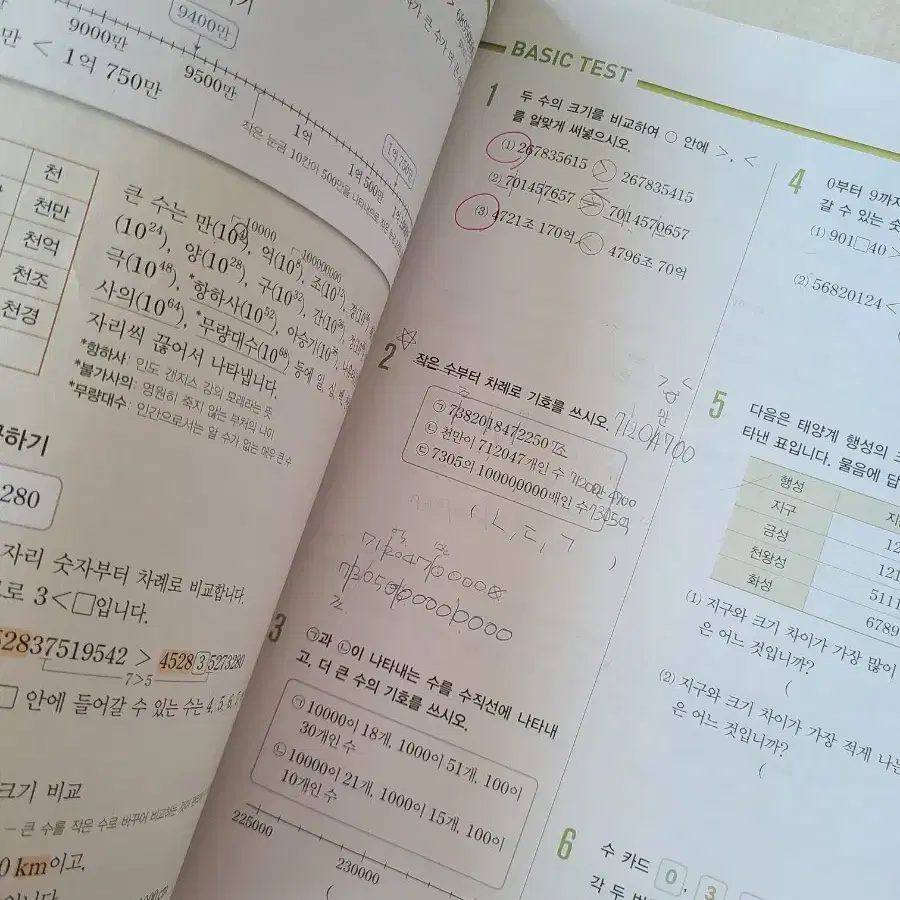 9400만
9000만
9500만
만 < 1억 750만
1억
1억 500만
1억 750만
작은 눈금 10칸이 500만을 나타내므로
천
천만
천억
천조
천경
큰 수는 만(10⁴), 억(10⁸), 조(10¹²),
0000
00000000
(10²⁴), 양(10²⁸), 구(10³²), 간(10³⁶),
극(10⁴⁸), *항하사(10⁵²),
사의(10⁶⁴), *무량대수(10⁶⁸) 등에 일, 십,
자리씩 끊어서 나타냅니다.
*항하사: 인도 갠지스 강의 모래라는 뜻
*불가사의: 영원히 죽지 않는 부처의 나이
*무량대수: 인간으로서는 알 수가 없는 매우 큰 수
하기
280
자리 숫자부터 차례로 비교합니다.
로 3<□입니다.
52837519542 > 452835273280
7>5
□ 안에 들어갈 수 있는 수는 4, 5, 6,
크기 비교
– 큰 수를 작은 수로 바꾸어 비교하는
0 km이고,
BASIC TEST
1 두 수의 크기를 비교하여 ○ 안에 >, <
를 알맞게 써넣으시오.
(1) 267835615 > 267835415
(2) 701457657 < 7014570657
(3) 4721조 170억 < 4796조 70억
> <
2 작은 수부터 차례로 기호를 쓰시오.
㉠ 7382018472250 조
㉡ 천만이 712047개인 수
㉢ 7305의 1000000000배인 수 7305억
( ㄴ, ㄷ, ㄱ )
억 만
조
3 ㉠과 ㉡이 나타내는 수를 수직선에 나타내
고, 더 큰 수의 기호를 쓰시오.
㉠ 10000이 18개, 1000이 51개, 100이
30개인 수
㉡ 10000이 21개, 1000이 15개, 100이
10개인 수
225000
230000
(
4 0부터 9까지
갈 수 있는 숫
(1) 901□40 >
(2) 56820124 <
5 다음은 태양계 행성의 크
타낸 표입니다. 물음에 답
행성
지구
12
금성
121
천왕성
5111
화성
6789
(1) 지구와 크기 차이가 가장 많이
은 어느 것입니까?
(
(2) 지구와 크기 차이가 가장 적게 나는
은 어느 것입니까?
(
6 수 카드 0, 3
각 두 번